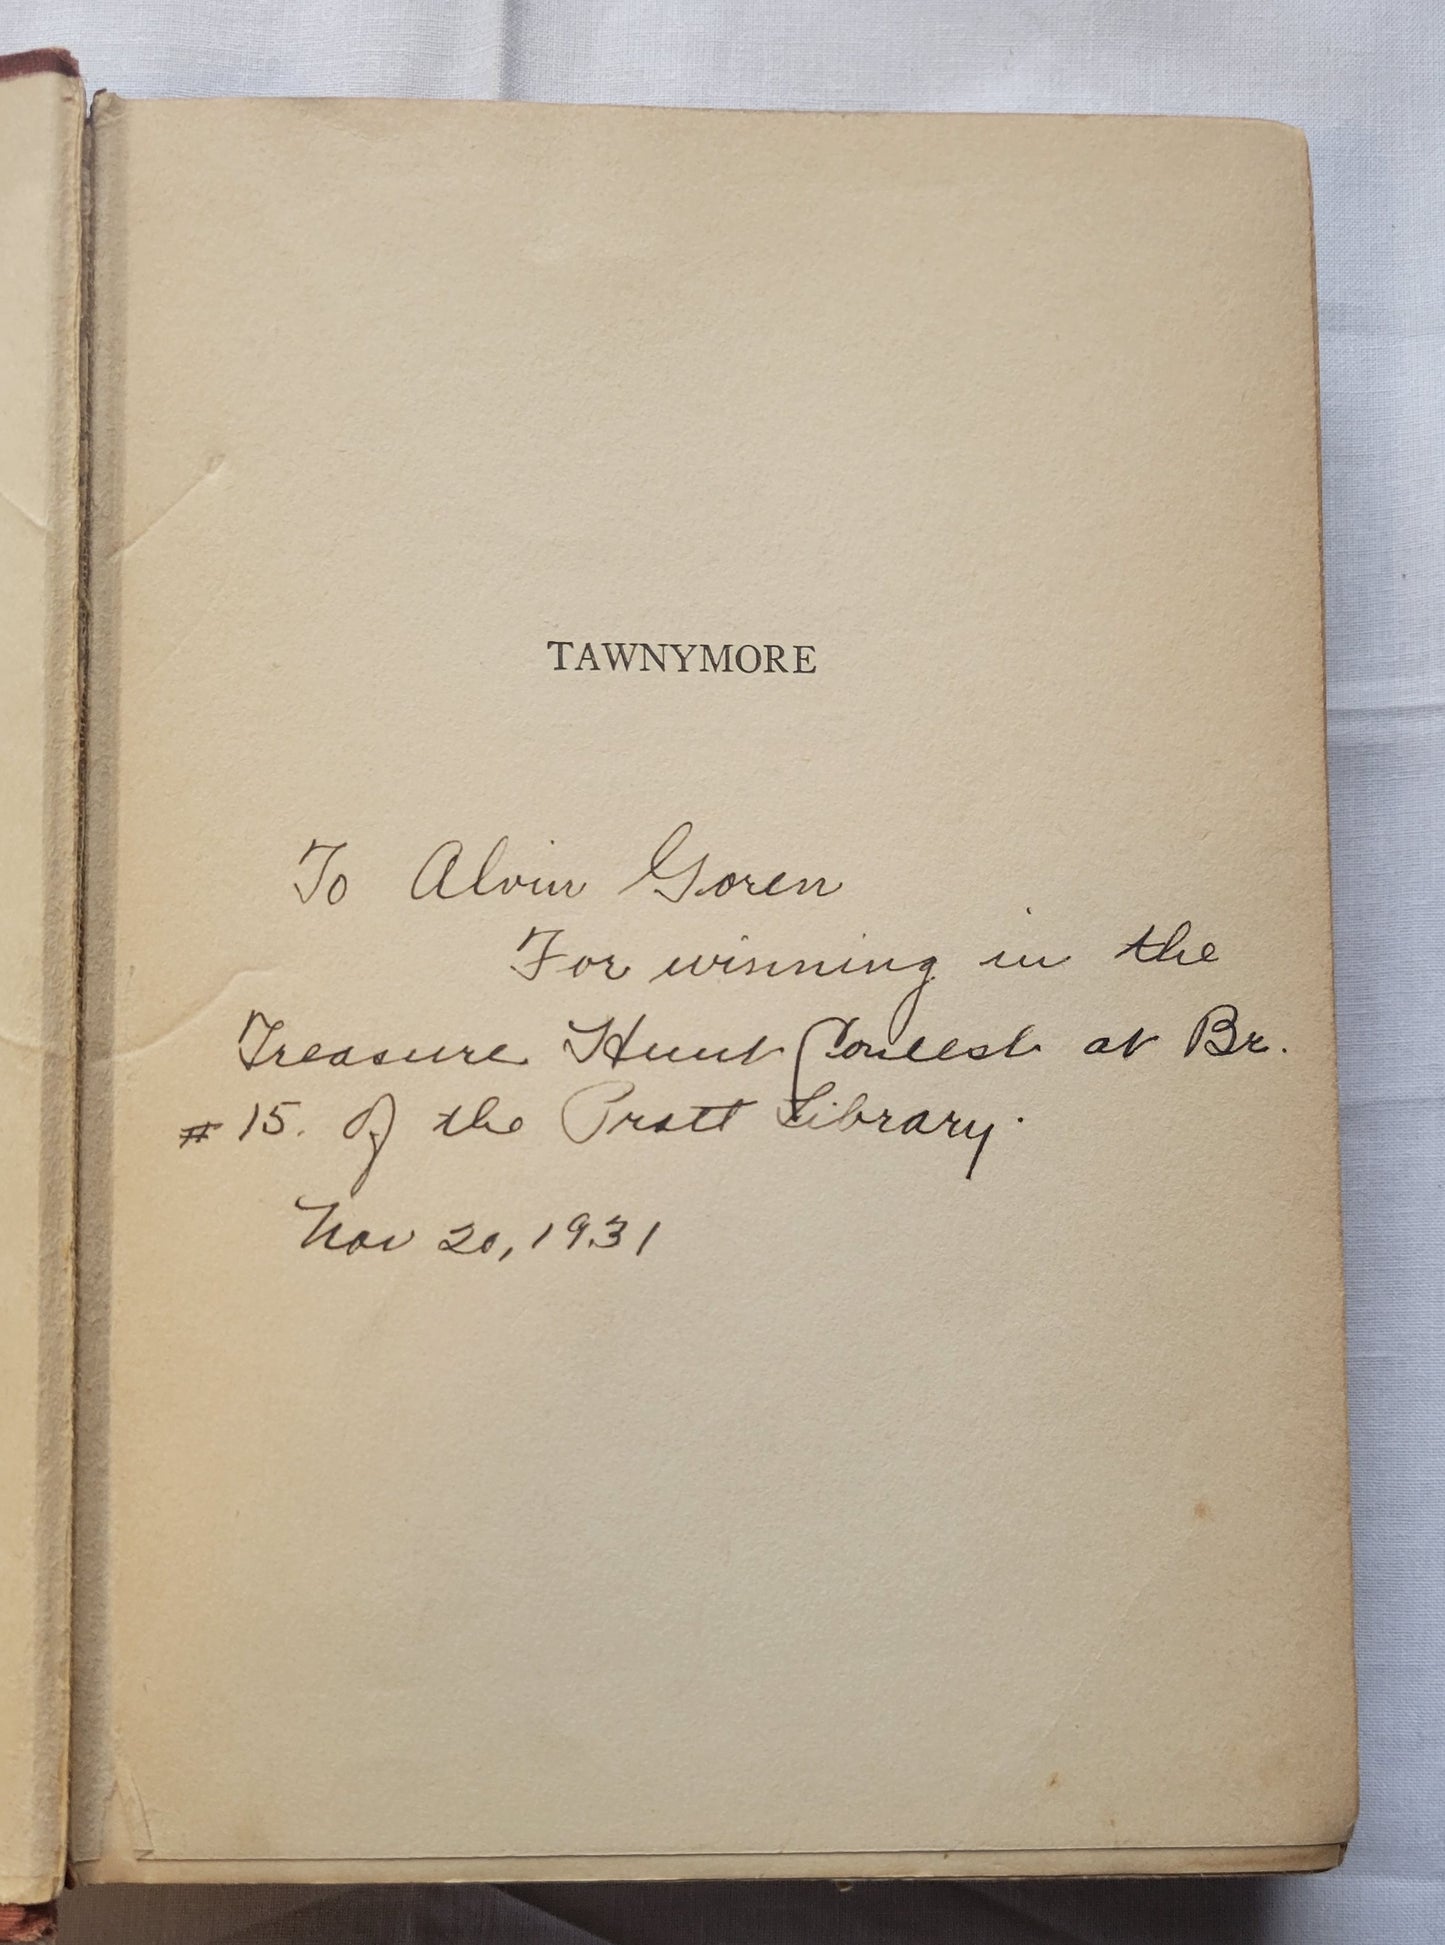 TAWNYMORE
To Alvin Goren
For winning in the
Treasure Hunt Contest at Br.
# 15. of the Pratt Library.
Nov 20, 1931